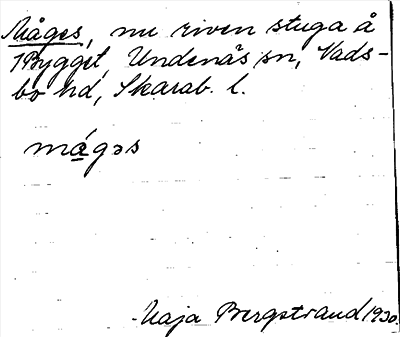 Måges, nu riven stuga å
Bygget, Undenäs sn, Vads-
bo hd, Skarab. l.
mágəs
Maja Bergstrand 1930.